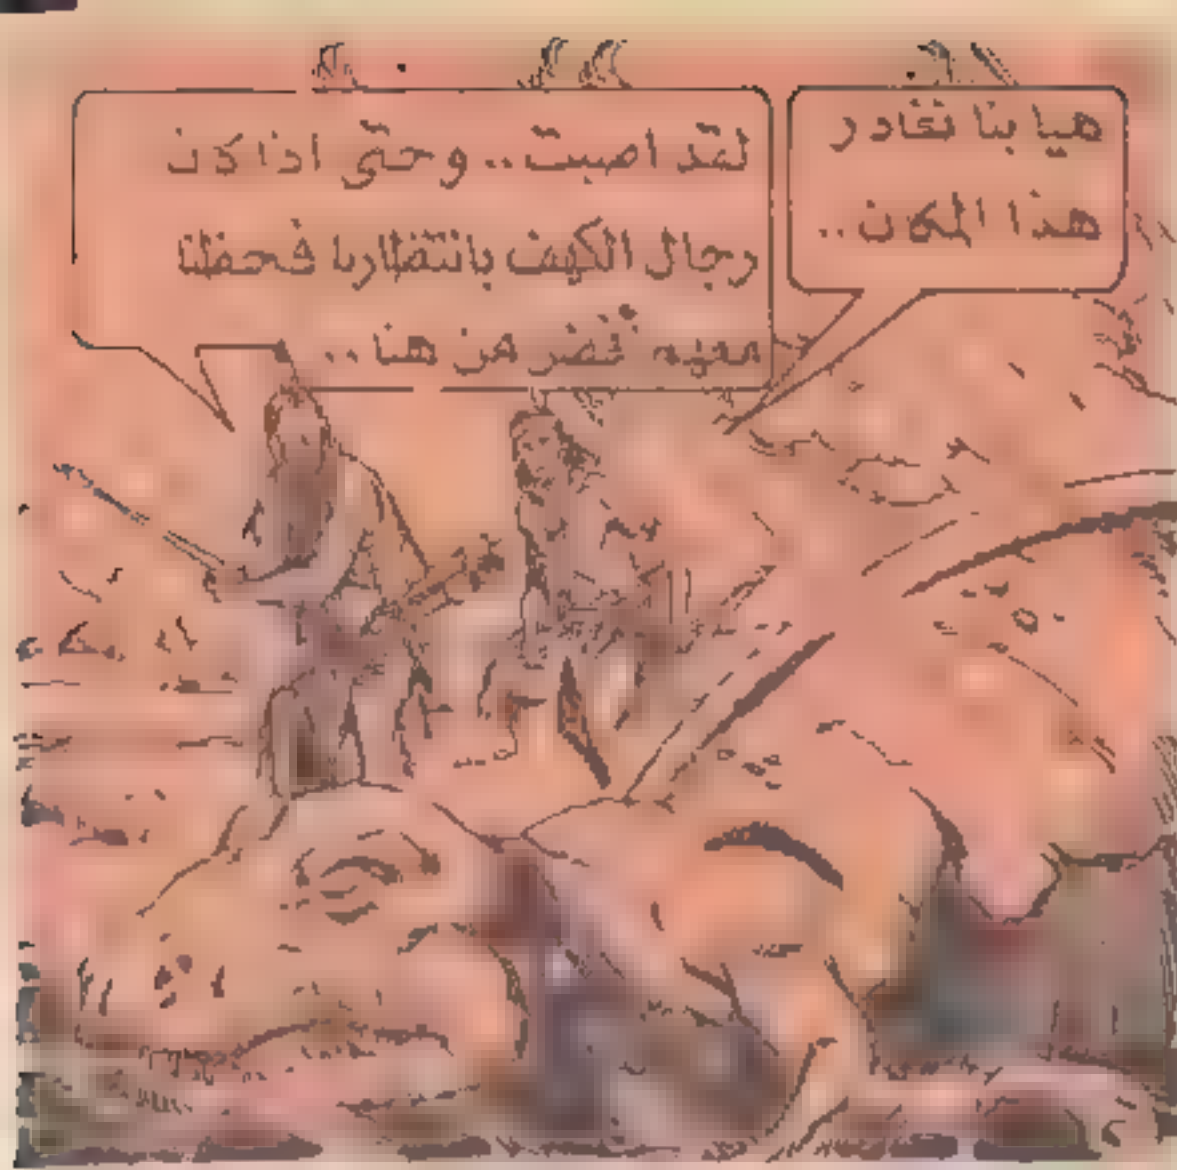 هيا بنا نغادر
هذا المكان..
لقد اصبت.. وحتى اذا كان
رجال الكهف بانتظارنا فحظنا
معهم خير من هنا..